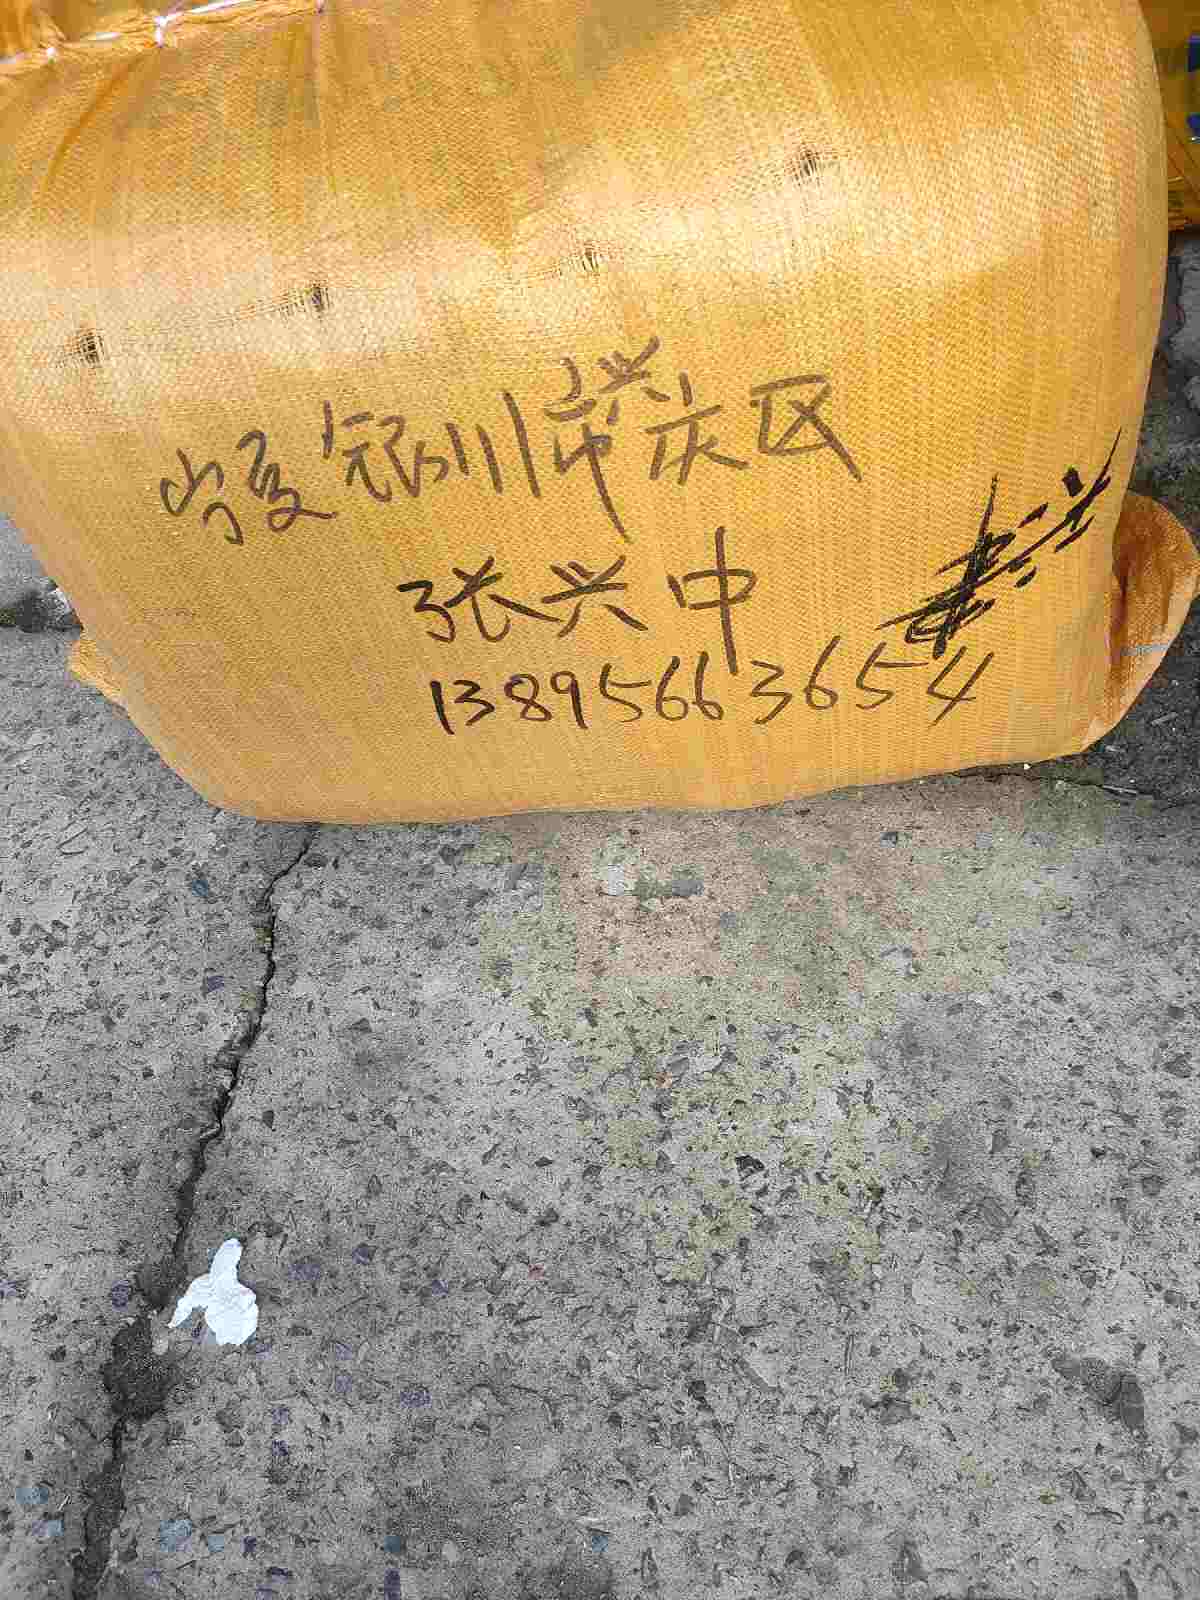 宁夏银川市兴庆区
张兴中
13895663654